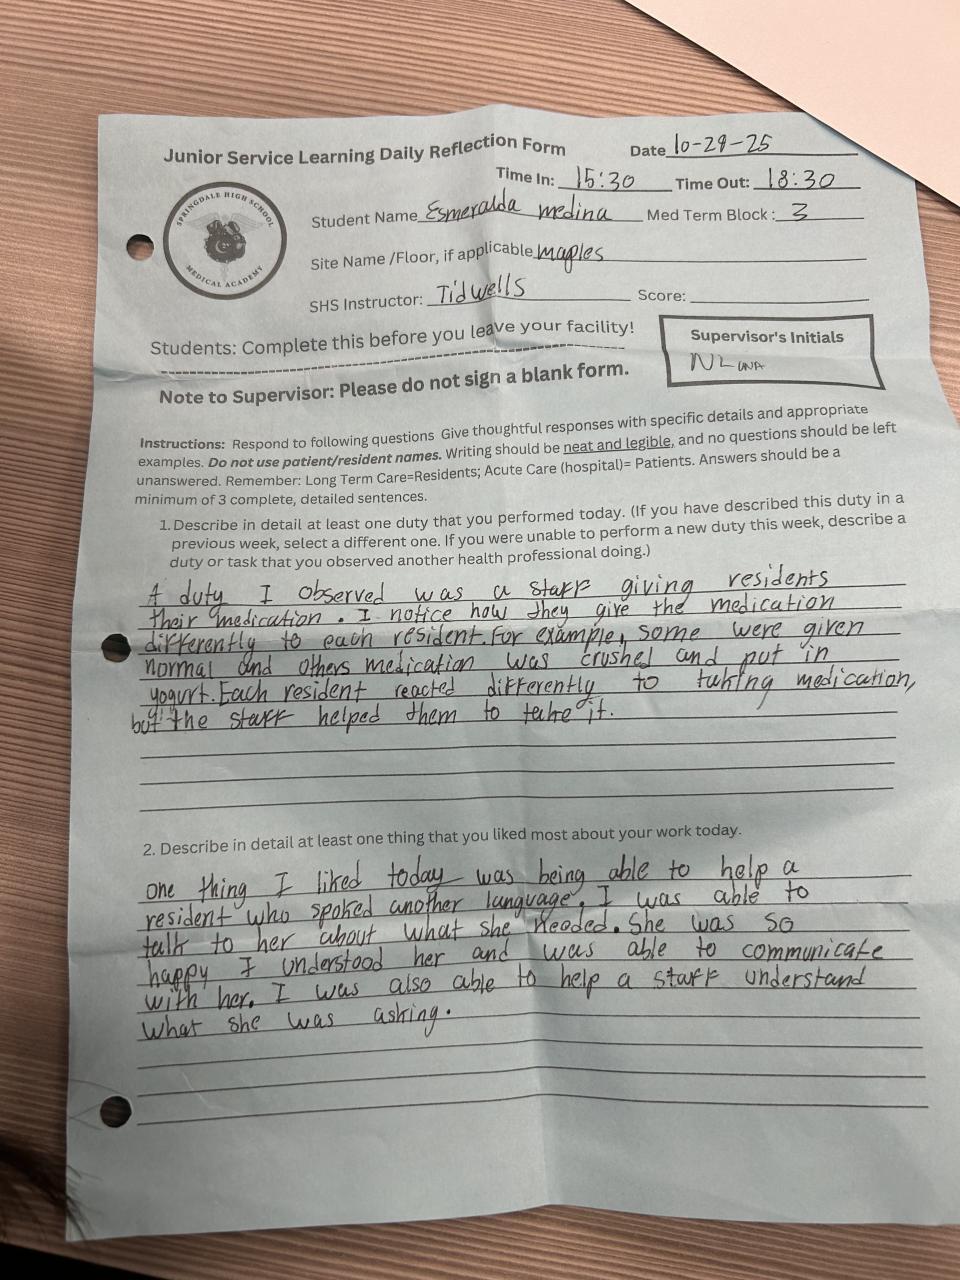 Junior Service Learning Daily Reflection Form
Date 10-29-25
Time In: 15:30 Time Out: 18:30
SPRINGDALE HIGH SCHOOL
MEDICAL ACADEMY
Student Name Esmeralda medina Med Term Block: 3
Site Name /Floor, if applicable maples
SHS Instructor: Tidwells Score:
Students: Complete this before you leave your facility!
Supervisor's Initials
NL CNA
Note to Supervisor: Please do not sign a blank form.
Instructions: Respond to following questions Give thoughtful responses with specific details and appropriate
examples. Do not use patient/resident names. Writing should be neat and legible, and no questions should be left
unanswered. Remember: Long Term Care=Residents; Acute Care (hospital)= Patients. Answers should be a
minimum of 3 complete, detailed sentences.
1. Describe in detail at least one duty that you performed today. (If you have described this duty in a
previous week, select a different one. If you were unable to perform a new duty this week, describe a
duty or task that you observed another health professional doing.)
A duty I observed was a staff giving residents
their medication. I notice how they give the medication
differently to each resident. For example, some were given
normal and others medication was crushed and put in
yogurt. Each resident reacted differently to taking medication,
but the staff helped them to take it.
2. Describe in detail at least one thing that you liked most about your work today.
one thing I liked today was being able to help a
resident who spoked another language. I was able to
talk to her about what she needed. She was so
happy I understood her and was able to communicate
with her. I was also able to help a staff understand
what she was asking.